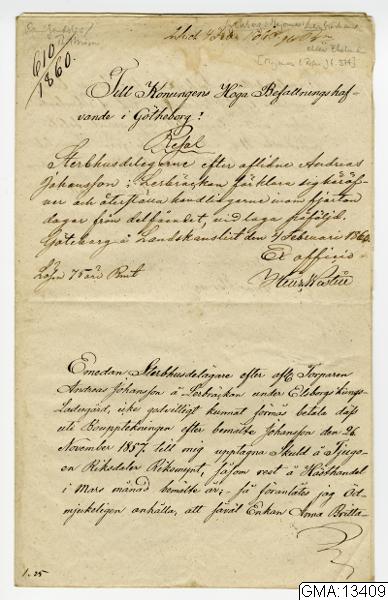 610
1860.
Till Konungens Höga Befallningshaf-
vande i Götheborg!
Resol
Sterbhusdelägarne efter aflidne Andreas
Johansson i Lerbräckan förklara sig häröf-
ver och återställa handlingarne inom fjorton
dagar från delfåendet, vid laga påföljd.
Göteborg å Landskansliet den 4 Februari 1860.
Ex officio
Lösn 75 öre Rmt
Emedan Sterbhusdelägare efter afl. Torparen
Andreas Johansson å Lerbräckan under Elfsborgs Kungs-
Ladugård, icke godvilligt kunnat förmås betala dess
uti Bouppteckningen efter bemälte Johansson den 26
November 1857 till mig upptagna Skuld å Tjugo-
en Riksdaler Riksmynt, såsom rest å Hästhandel
i Mars månad bemälte år; så föranlåtes jag Öd-
mjukeligen anhålla, att såväl Enkan Anna Britta
1.25
GMA:13409